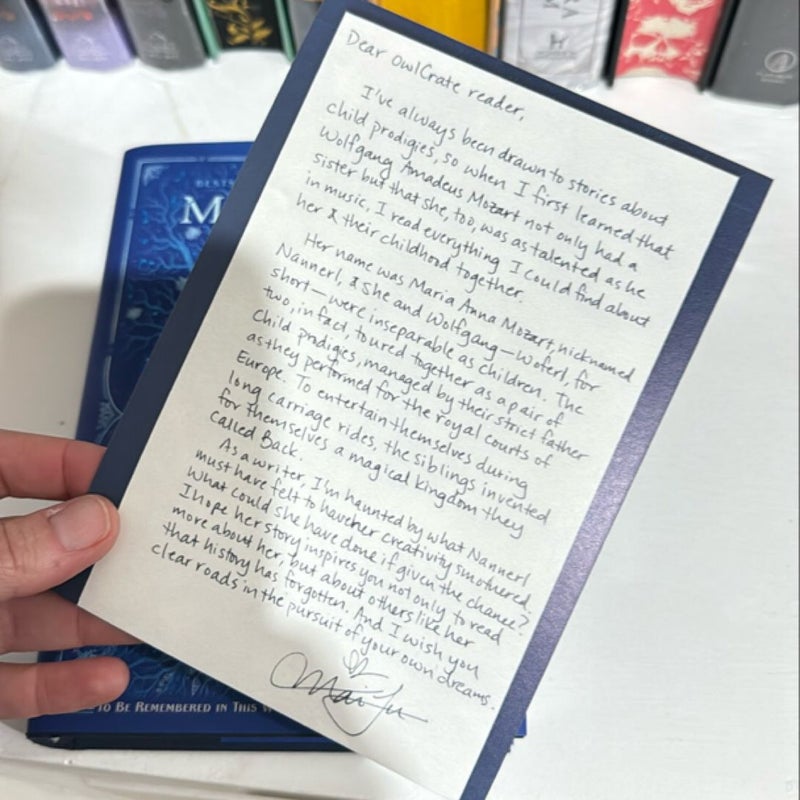 Dear OwlCrate reader,
I've always been drawn to stories about
child prodigies, so when I first learned that
Wolfgang Amadeus Mozart not only had a
sister but that she, too, was as talented as he
in music, I read everything I could find about
her & their childhood together.
Her name was Maria Anna Mozart, nicknamed
Nannerl, & she and Wolfgang—Woferl, for
short—were inseparable as children. The
two, in fact, toured together as a pair of
child prodigies, managed by their strict father
as they performed for the royal courts of
Europe. To entertain themselves during
long carriage rides, the siblings invented
for themselves a magical kingdom they
called Back.
As a writer, I'm haunted by what Nannerl
must have felt to have her creativity smothered.
What could she have done if given the chance?
I hope her story inspires you not only to read
more about her, but about others like her
that history has forgotten. And I wish you
clear roads in the pursuit of your own dreams.
M
TO BE REMEMBERED IN THIS W